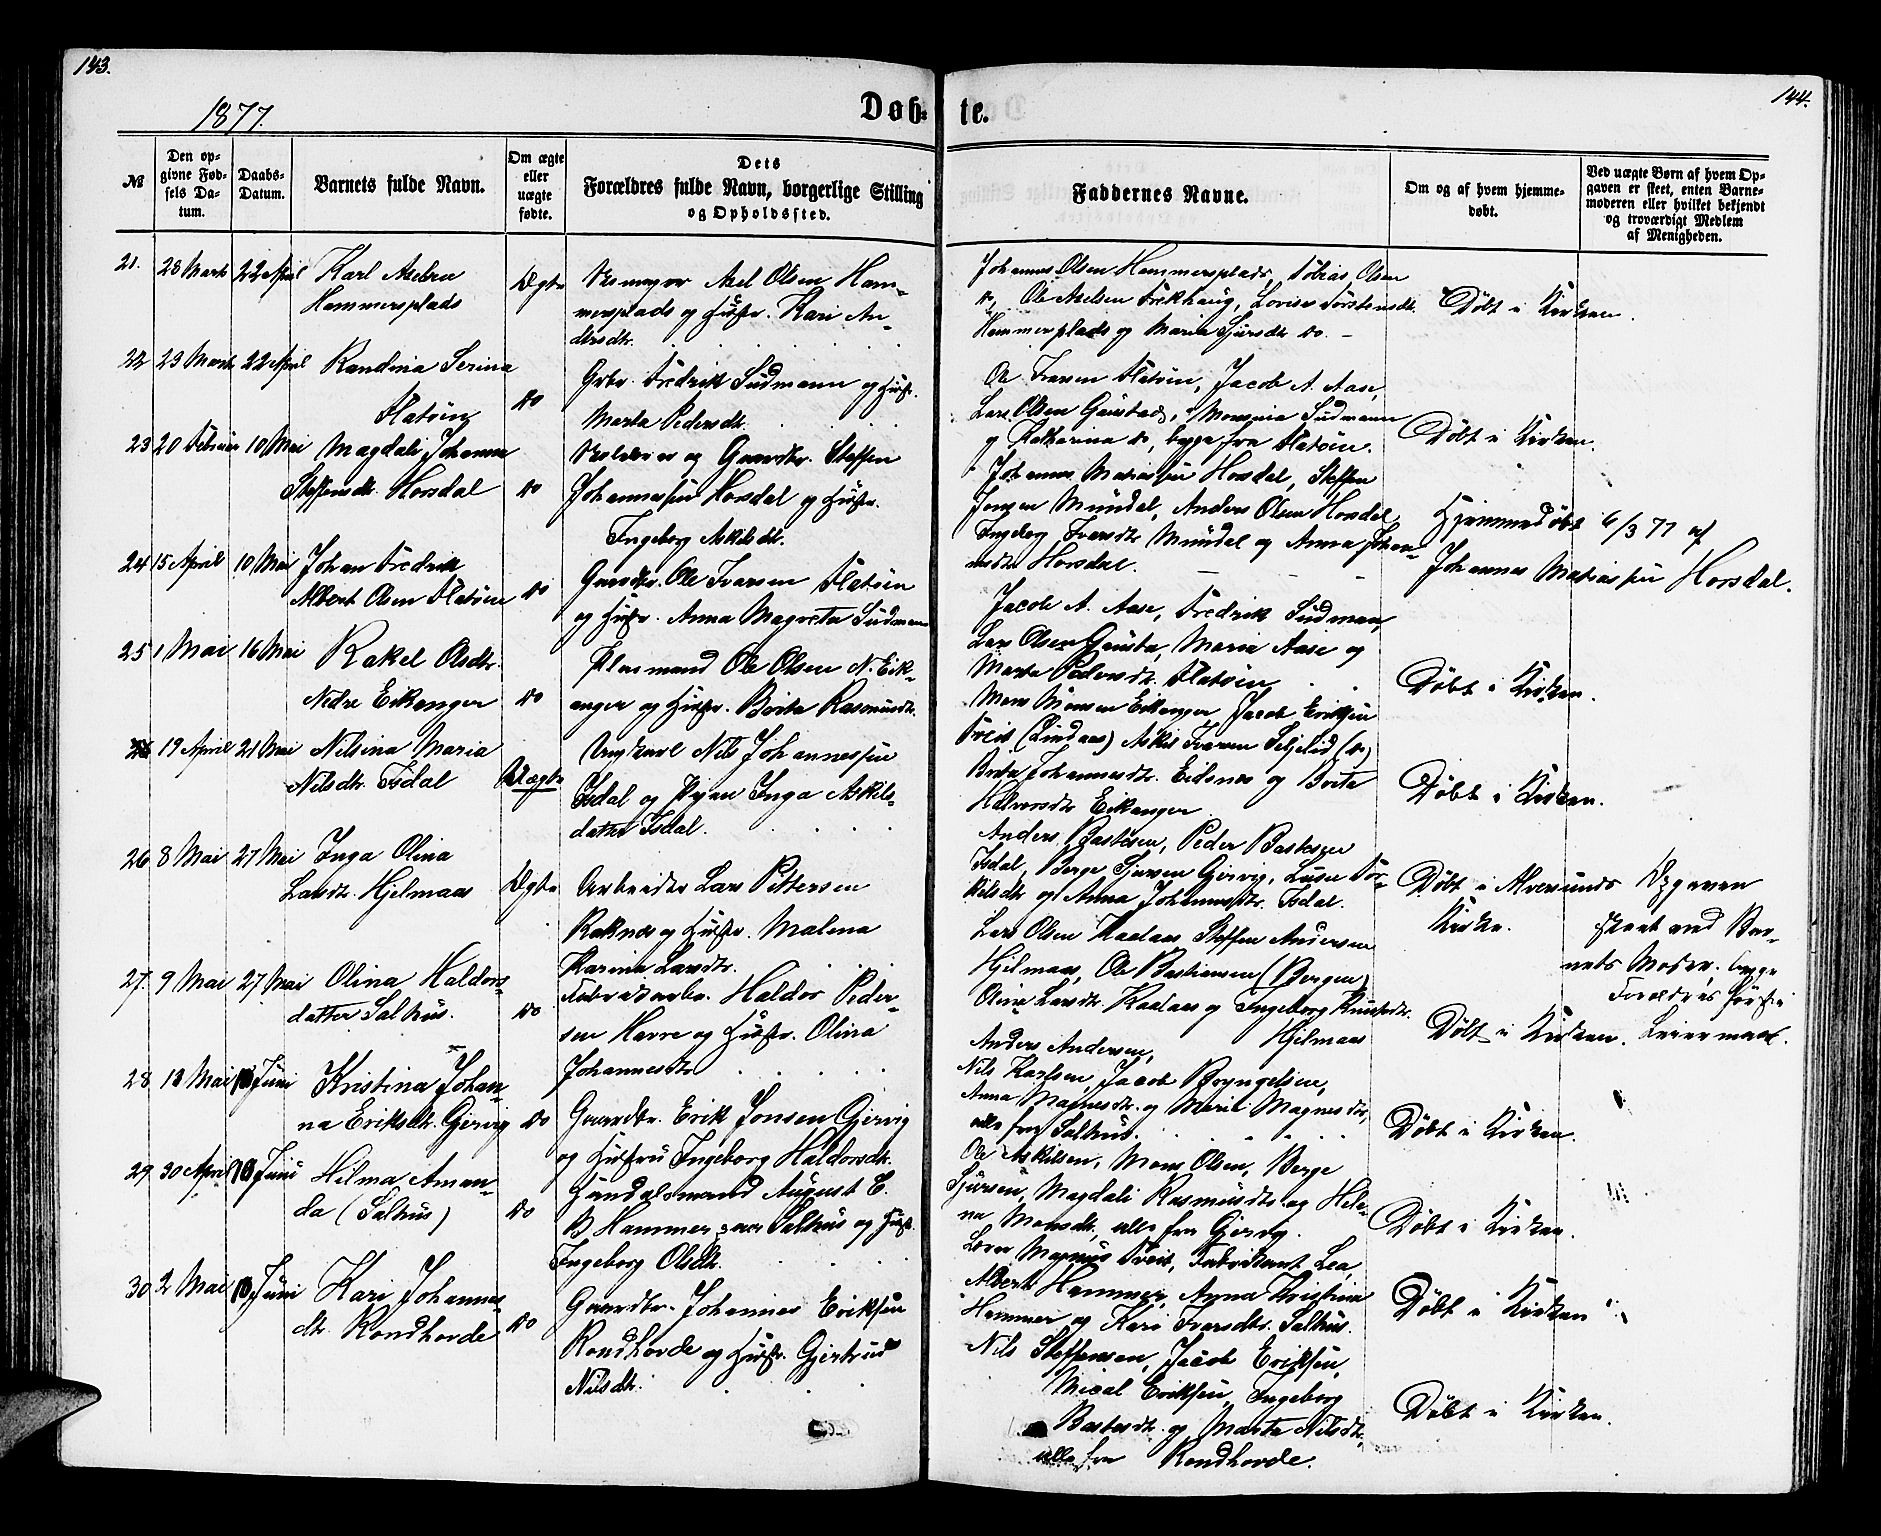 143.
144.
1877.
Døb-
te.
№
Den op-
givne Fød-
sels Da-
tum.
Daabs-
Datum.
Barnets fulde Navn.
Om ægte
eller
uægte
fødte.
Dets
Forældres fulde Navn, borgerlige Stilling
og Opholdssted.
Faddernes Navne.
Om og af hvem hjemme-
døbt.
Ved uægte Børn af hvem Op-
gaven er skeet, enten Barne-
moderen eller hvilket bekjendt
og troværdigt Medlem
af Menigheden.
21. 28 Marts 22 April Karl Axelsen
Hammersplads
Ægte
Axel Olsen Ham-
mersplads og Hustr. Kari An-
dersdtr.
Johannes Olsen Hammersplads, Tobias Olsen
do, Ole Axelsen Frekhaug, Lovise Torstensdt.
Hammersplads og Maria Sjursdtr do. -
Døbt i Kirken.
22 23 Marts 22 April Randina Serina
Flatøen
do
Grbr. Fredrik Sudmann og Hustr.
Marta Pedersdtr.
Ole Iversen Flatøen, Jacob A. Aase,
Lars Olsen Gaustad, Monsina Sudmann
og Katharina do, begge fra Flatøen.
Døbt i Kirken.
23 20 Februar 10 Mai Magdali Johanna
Steffensdtr. Horsdal
do
og Gaardbr. Steffen
Johannessen Horsdal og Hustr.
Ingeborg Askilsdtr.
Johannes Matiassen Horsdal, Steffen
Jensen Mundal, Anders Olsen Horsdal
Ingeborg Iversdtr Mundal og Anna Johan-
nesdtr Horsdal.
Hjemmedøbt 6/3 77 af
Johannes Matiassen Horsdal.
24 15 April 10 Mai Johan Fredrik
Albert Olsen Flatøen
do
Gaardbr. Ole Iversen Flatøen
og Hustr. Anna Magreta Sudmann
Jacob A. Aase, Fredrik Sudman,
Lars Olsen Gausta, Maria Aase og
Marta Pedersdtr. Flatøen
Døbt i Kirken.
25 1 Mai 16 Mai Rakel Olsdtr.
Nedre Eikanger
do
Plasmand Ole Olsen N. Eik-
anger og Hustr. Brita Rasmusdtr.
Mons Monsen Eikanger Jacob Eriksen
Tveit (Lindaas) Askil Iversen Seljelid (do)
Brita Johannesdtr. Eidsnes og Brita
Halvorsdtr Eikanger
Døbt i Kirken.
19 April 21 Mai Nilsina Maria
Nilsdtr. Isdal
Uægte
Ungkarl Nils Johannessen
Isdal og Pigen Inga Askils-
datter Isdal.
Anders Bastesen, Peder Bastesen
Isdal, Berge Sjursen Gjervig, Lusie Tor-
kilsdtr og Anna Johannesdtr. Isdal.
Opgaven
skeet ved Bar-
nets Moder. begge
Forældres første
Leiermaal.
26 8 Mai 27 Mai Inga Olina
Larsdtr. Hjelmaas
Ægte
Arbeider Lars Pettersen
Raknes og Hustr. Malena
Karina Larsdtr.
Lars Olsen Kaalaas Steffen Andersen
Hjelmaas, Ole Bastiansen (Bergen)
Olina Larsdtr. Kaalaas og Ingeborg Knudsdtr.
Hjelmaas
Døbt i Alversunds
Kirke.
27. 9 Mai 27 Mai Olina Haldors-
datter Salhus.
do
Fabrikarbr. Haldor Peder-
sen Herre og Hustr. Olina
Johannesdtr
Anders Andersen,
Nils Karlsen, Jacob Bryngelsen,
Anna Magnesdtr. og Marie Magnesdtr,
alle fra Salhus.
Døbt i Kirken.
28 Mai Juni Kristina Johan-
na Eriksdtr. Gjervig
do
Gaardbr. Erik Jonsen Gjervig
og Hustru Ingeborg Haldorsdtr.
Ole Askilsen, Mons Olsen, Berge
Sjursen, Magdali Rasmusdtr. og Hele-
na Monsdtr, alle fra Gjervig.
Døbt i Kirken.
29 30 April Juni Hilma Aman-
da (Salhus)
do
Handelsmand August E.
B Hammer paa Salhus og Hustr.
Ingeborg Olsdtr.
Lærer Magnus Tveit, Fabrikant Lea,
Albert Hammer, Anna Kristina
Hammer og Kari Ivarsdtr. Salhus.
Døbt i Kirken.
30 2 Mai Juni Kari Johannes-
dtr. Rondhovde
do
Gaardbr. Johannes Eriksen
Rondhovde og Hustr. Gjertrud
Nilsdtr.
Nils Steffensen, Jacob Eriksen,
Mical Eriksen, Ingeborg
Bastesdtr. og Marta Nilsdtr,
alle fra Rondhovde.
Døbt i Kirken
Døbt i Kirken.